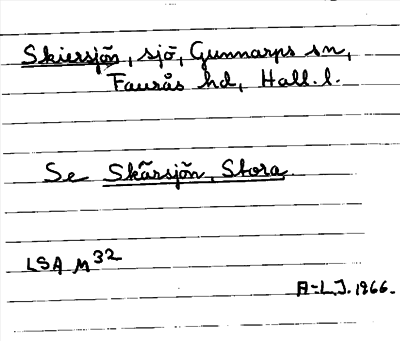 Skiersjön, sjö, Gunnarps sn,
Faurås hd, Hall. l.
Se Skärsjön, Stora.
LSA M 32
A-L.J. 1966.